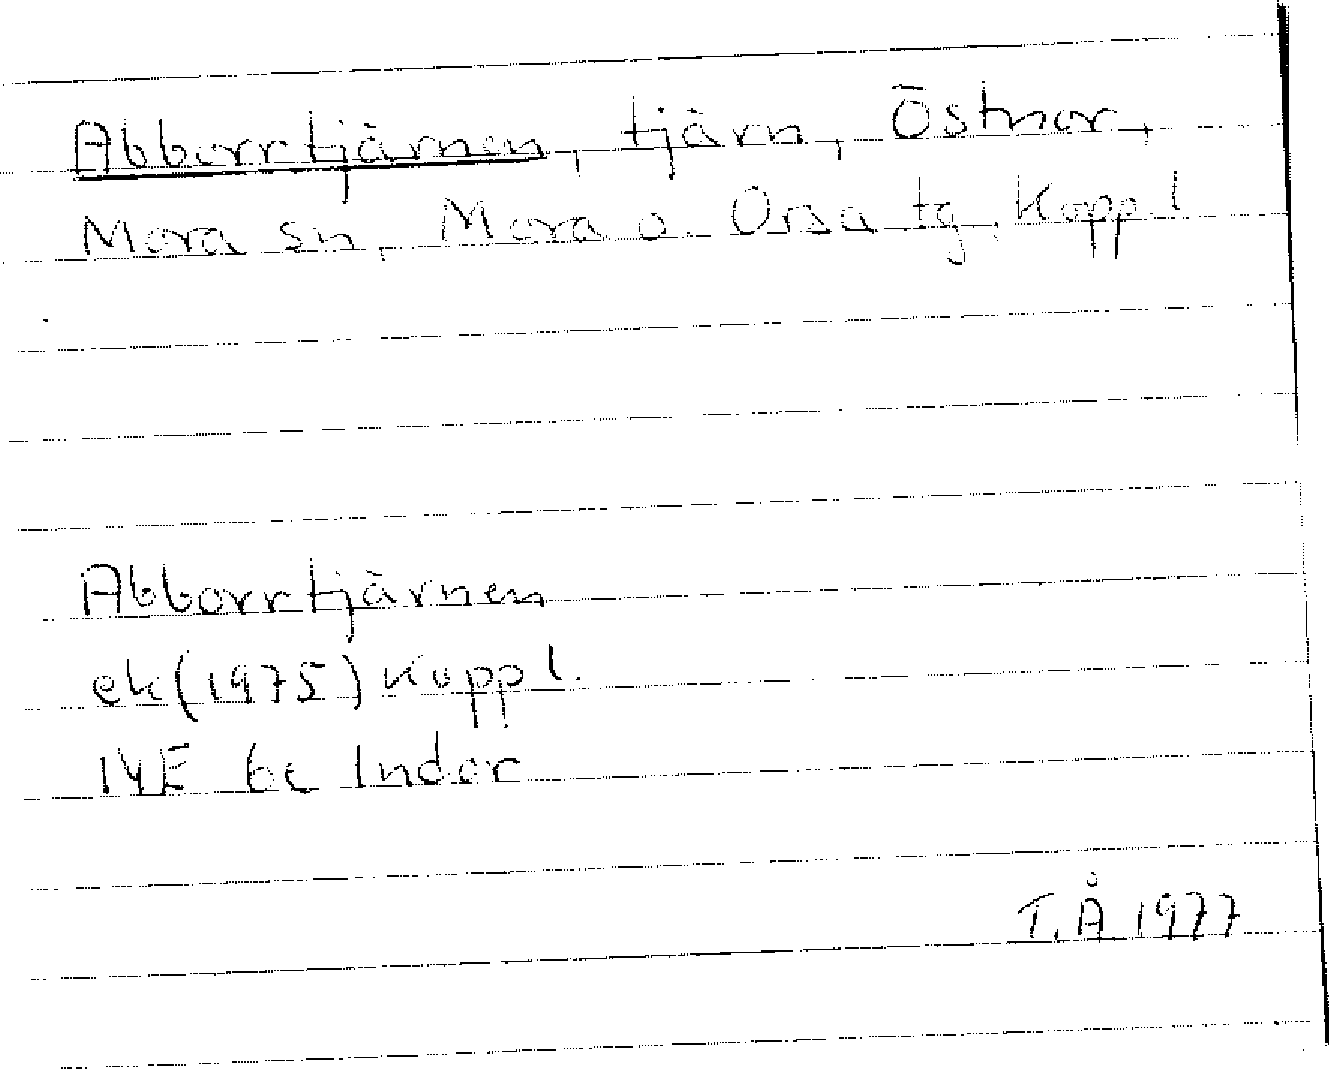 Abborrtjärnen, tjärn, Östnor,
Mora sn, Mora o. Orsa tg, Koppl
Abborrtjärnen
ek (1975) Koppl.
14E 6c Indor
T.Å 1977